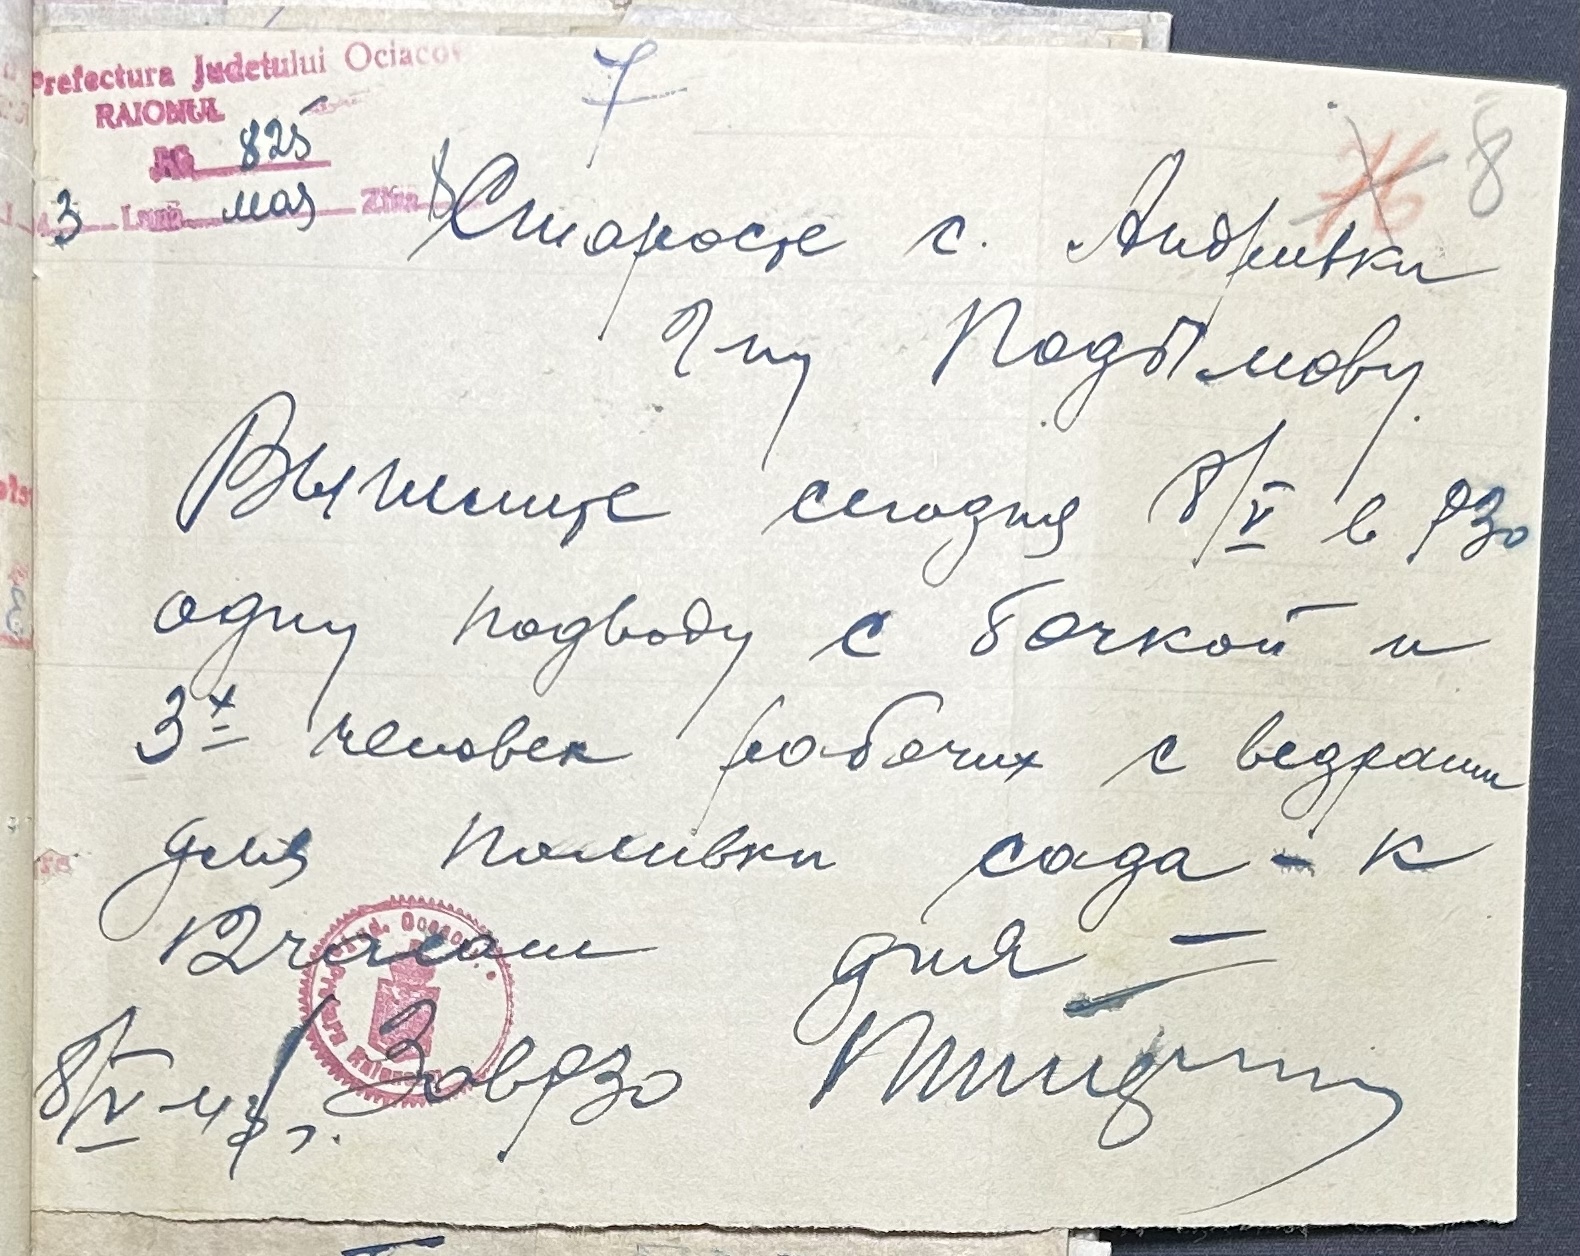 Prefectura Judetului Ociacov
RAIONUL
№ 825
7
8
3 Luna мая Ziua 8
Старосте с. Андривки
Г-ну Подымову.
Вышлите сегодня 8/V в РЗО
одну подводу с бочкой и
3х человек рабочих с ведрами
для поливки сада - к
12 часам дня
8/V-43 г. Зав РЗО